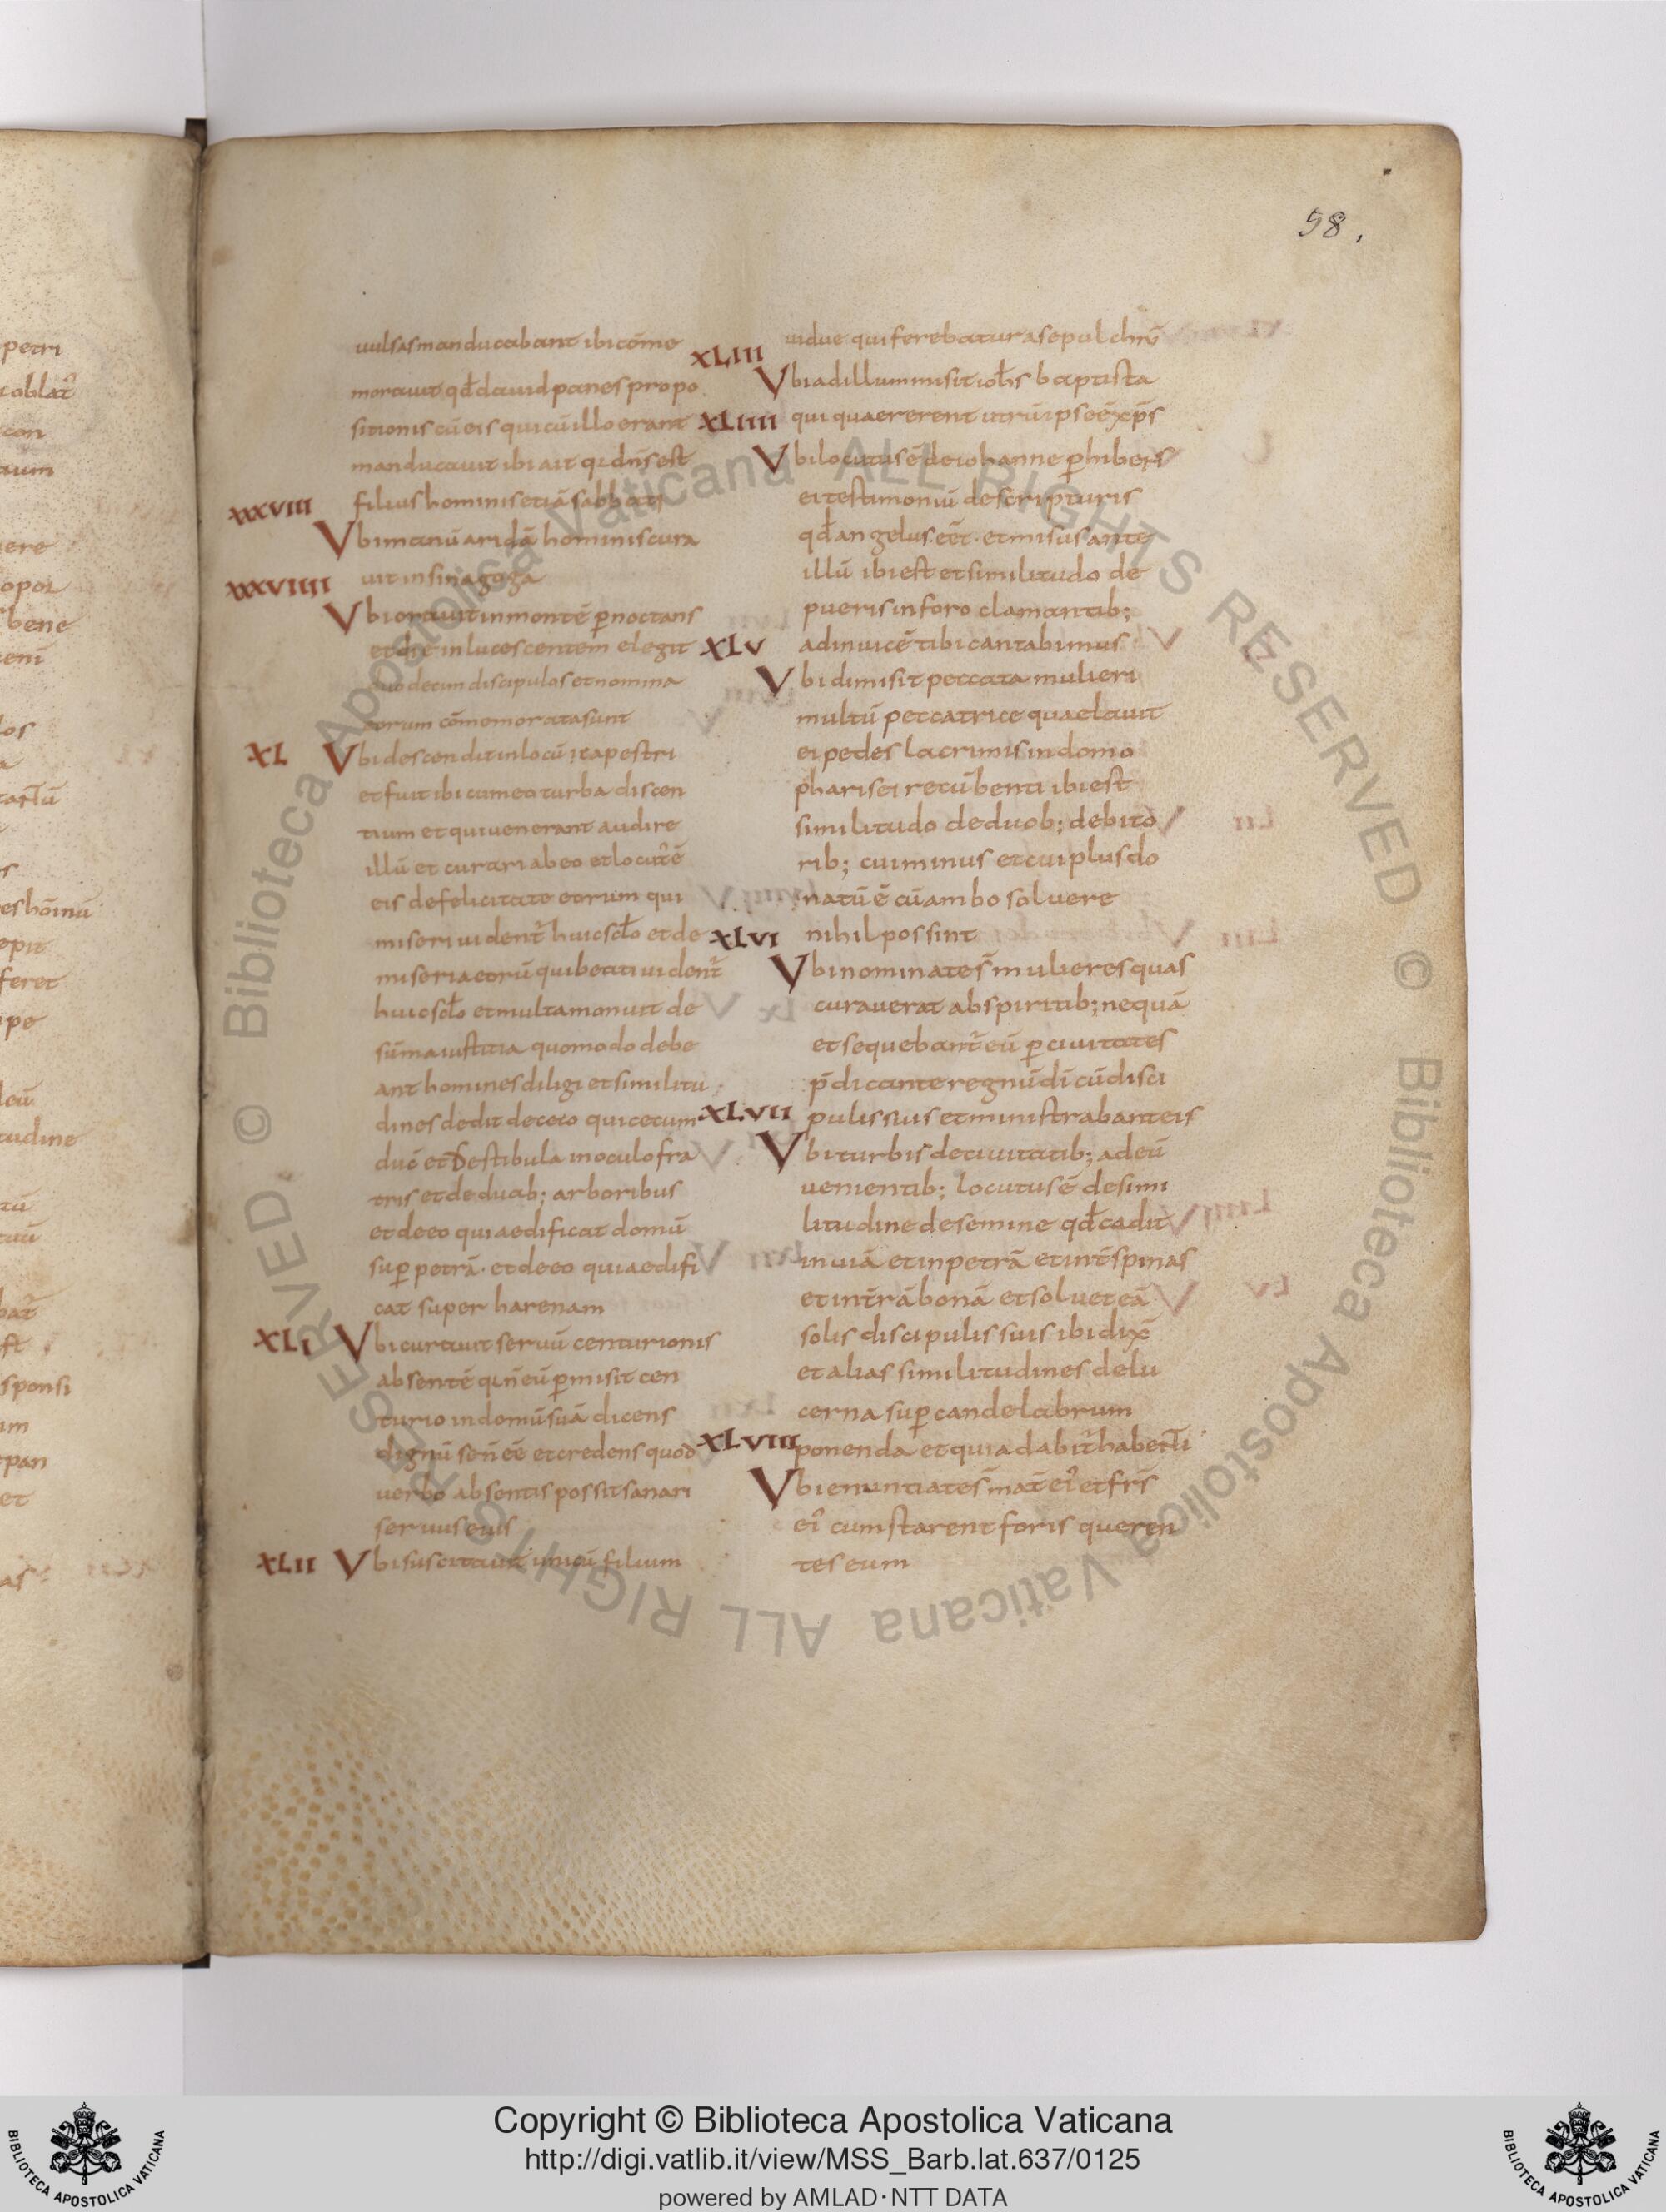 58.
uulsas manducabant ibi cōme
morauit qđ dauid panes propo
sitionis cū eis qui cū illo erant
manducauit ibi ait qi dn̄s est
filius hominis etiā sabbati
XXXVIII
Vbi manū aridā hominis cura
uit in sinagoga
XXXVIIII
Vbi orauit in montē ꝑnoctans
et die in lucescentem elegit
duodecim discipulos et nomina
eorum cōmemorata sunt
XL
Vbi descendit in locū capestri
et fuit ibi cum eo turba discen
tium et qui uenerant audire
illū et curari ab eo et locut᷒ ē
eis de felicitate eorum qui
miseri uident᷒ huic sc̄lo et de
miseria eorū qui beati uident᷒
huic sc̄lo et multa monuit de
sūma iustitia quomodo debe
ant homines diligi et similitu
dines dedit de ceco qui cecum
ducē et de stibula in oculo fra
tris et de duab; arboribus
et de eo qui aedificat domū
suꝑ petrā · et de eo qui aedifi
cat super harenam
XLI
Vbi curauit seruū centurionis
absentē qi n̄ eū ꝑmisit cen
turio in domū suā dicens
dignū se n̄ eē et credens quod
uerbo absentis possit sanari
seruus eius
XLII
Vbi suscitauit unicū filium
uidue qui ferebatur a sepulchrū
XLIII
Vbi ad illum misit ioh̄s baptista
qui quaererent utrū ipse ē xp̄s
XLIIII
Vbi locutus ē de iohanne ꝑhibens
ei testimoniū de scripturis
qđ angelus eēt · et misus ante
illū ibi est et similitudo de
pueris in foro clamantib;
ad inuicē tibi cantabimus
XLV
Vbi dimisit peccata mulieri
multū peccatrice quae lauit
ei pedes lacrimis in domo
pharisei recūbenti ibi est
similitudo de duob; debito
rib; cui minus et cui plus do
natū ē cū ambo soluere
nihil possint
XLVI
Vbi nominate s̄ mulieres quas
curauerat ab spiritib; nequā
et sequebant᷒ eū ꝑ ciuitates
p̄dicante regnū dī cū disci
pulis suis et ministrabant eis
XLVII
Vbi turbis de ciuitatib; ad eū
uenientib; locutus ē de simi
litudine de semine qđ cadit
in uiā et in petrā et int̄ spinas
et in t̄rā bonā et soluet eā
solis discipulis suis ibi dix̄
et alias similitudines de lu
cerna suꝑ candelabrum
ponenda et quia dabit᷒ habenti
XLVIII
Vbi enuntiate s̄ mat̄ ei᷒ et fr̄s
ei᷒ cum starent foris queren
tes eum
Copyright © Biblioteca Apostolica Vaticana
http://digi.vatlib.it/view/MSS_Barb.lat.637/0125
powered by AMLAD·NTT DATA